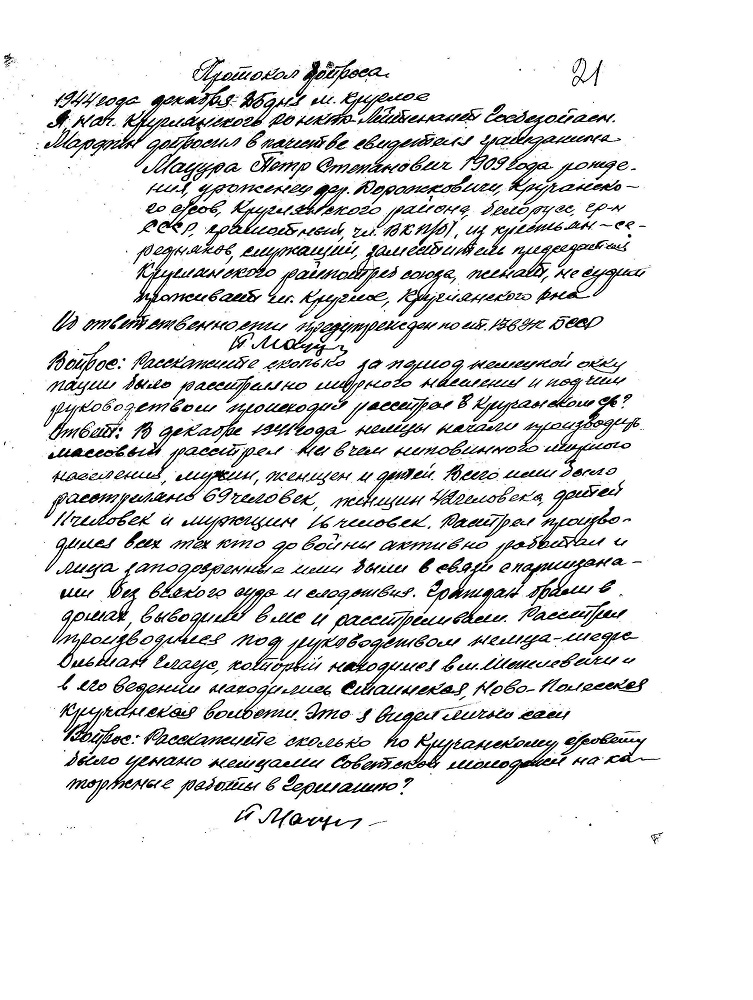 Протокол допроса
21
1944 года декабря 26 дня м. Круглое
Я нач. Круглянского РО НКГБ Лейтенант Госбезопасн.
Марфин допросил в качестве свидетеля гражданина
Мацура Петр Степанович 1909 года рожде-
ния, уроженец дер. Дорожковичи, Кручанско-
го с/сов, Круглянского района, Белорус, гр-н
СССР, грамотный, чл. ВКП/б/, из крестьян-се-
редняков, служащий, заместитель председателя
Круглянского райпотребсоюза, женат, не судим
проживает м. Круглое, Круглянского р-на
Об ответственности предупрежден по ст. 136 УК БССР
П Мацур
Вопрос: Расскажите сколько за период немецкой окку
пации было расстреляно мирного населения и под чьим
руководством происходил расстрел в Кручанском с/с?
Ответ: В декабре 1941 года немцы начали производить
массовый расстрел ни в чем неповинного мирного
населения, мужчин, женщин и детей. Всего ими было
расстреляно 69 человек, женщин 42 человека, детей
11 человек и мужчин 16 человек. Расстрел произво-
дился всех тех кто до войны активно работал и
лица заподозренные ими были в связи с партизана-
ми без всякого суда и следствия. Граждан брали в
домах, выводили в лес и расстреливали. Расстрел
производился под руководством немца-шефа
Ольман Клаус, который находился в м. Шепелевичи и
в его ведении находились Стаинская, Ново-Полесская
Кручанская волости. Это я видел лично сам
Вопрос: Расскажите сколько по Кручанскому с/совету
было угнано немцами Советской молодежи на ка-
торжные работы в Германию?
П Мацур